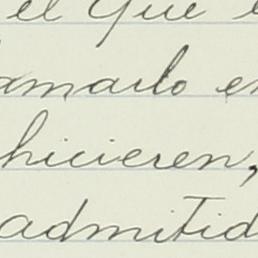 el que
amarlo en
hicieren,
admitid